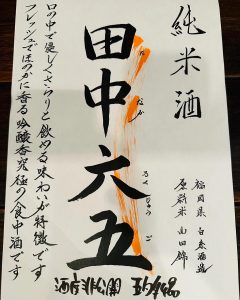 純米酒
福岡県 白糸酒造
原料米 山田錦
たなか ろくじゅうご
田中六五
口の中で優しくさらりと飲める味わいが特徴です
フレッシュでほのかに香る吟醸香究極の食中酒です